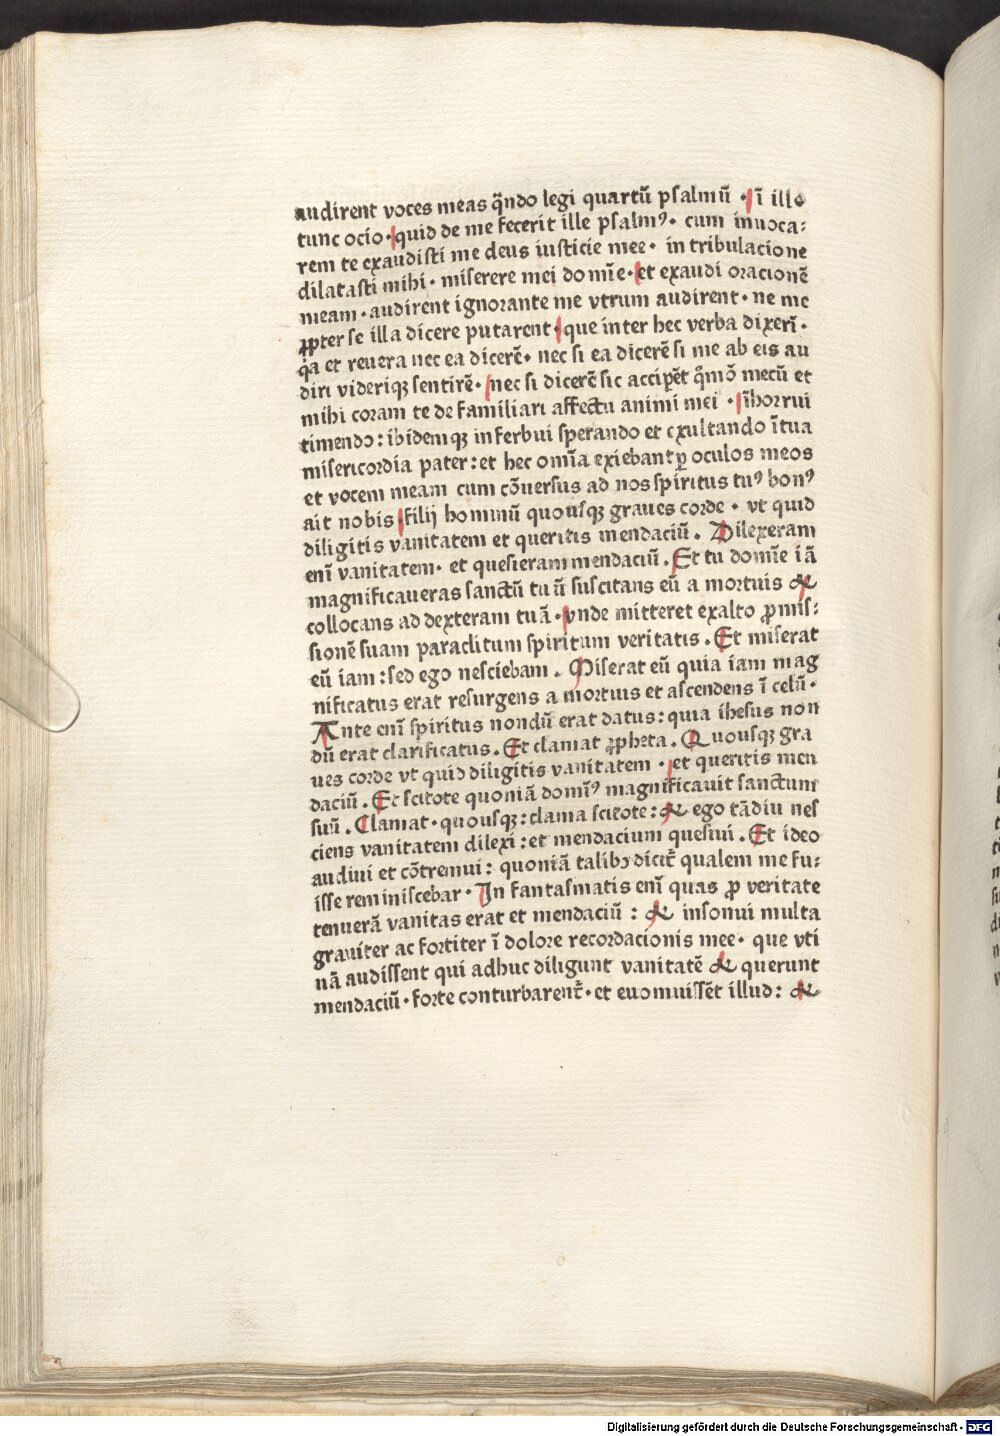 audirent voces meas q̃ndo legi quartũ psalmũ · ĩ illo
tunc ocio · quid de me fecerit ille psalmꝰ · cum inuoca:
rem te exaudisti me deus iusticie mee · in tribulacione
dilatasti mihi · miserere mei domĩe · et exaudi oracionẽ
meam · audirent ignorante me vtrum audirent · ne me
ꝓpter se illa dicere putarent · que inter hec verba dixerĩ ·
q̃a et reuera nec ea dicerẽ · nec si ea dicerẽ si me ab eis au
diri videriqꝫ sentirẽ · nec si dicerẽ sic accipẽt q̃mõ mecũ et
mihi coram te de familiari affectu animi mei · ĩhorrui
timendo : ibidemqꝫ inferbui sperando et exultando ĩ tua
misericordia pater : et hec omĩa exiebant ꝑ oculos meos
et vocem meam cum cõuersus ad nos spiritus tuꝰ bonꝰ
ait nobis · filij hominũ quousqꝫ graues corde · vt quid
diligitis vanitatem et queritis mendaciũ . Dilexeram
enĩ vanitatem · et quesieram mendaciũ . Et tu domĩe iã
magnificaueras sanctũ tuũ suscitans eũ a mortuis &
collocans ad dexteram tuã · vnde mitteret exalto ꝓmis:
sionẽ suam paraclitum spiritum veritatis . Et miserat
eũ iam : sed ego nesciebam . Miserat eũ quia iam mag
nificatus erat resurgens a mortuis et ascendens ĩ celũ ·
Ante enĩ spiritus nondũ erat datus : quia ihesus non
dũ erat clarificatus . Et clamat ꝓpheta . Quousqꝫ gra
ues corde vt quid diligitis vanitatem · et queritis men
daciũ . Et scitote quoniã domĩꝰ magnificauit sanctum
suũ . Clamat · quousqꝫ : clama scitote : & ego tãdiu nes
ciens vanitatem dilexi : et mendacium quesiui . Et ideo
audiui et cõtremui : quoniã talibꝫ dicit̃ qualem me fu:
isse reminiscebar · In fantasmatis enĩ quas ꝓ veritate
tenuerã vanitas erat et mendaciũ : & insonui multa
grauiter ac fortiter ĩ dolore recordacionis mee · que vti
nã audissent qui adhuc diligunt vanitatẽ & querunt
mendaciũ · forte conturbarent̃ · et euomuissẽt illud : &
Digitalisierung gefördert durch die Deutsche Forschungsgemeinschaft - DFG